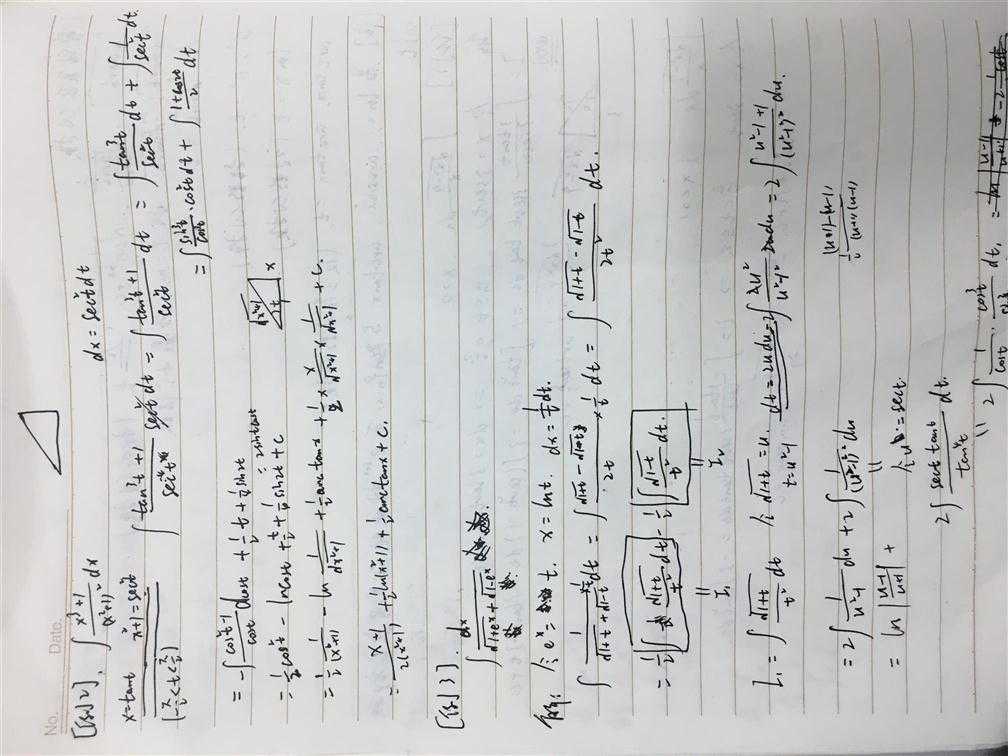 No.
Date.
[例2]. ∫ (x³+1)/(x²+1)² dx
x=tant x²+1=sec²t dx=sec²t dt
(-π/2<t<π/2)
∫ (tan³t+1)/sec⁴t sec²t dt = ∫ (tan³t+1)/sec²t dt = ∫ tan³t/sec²t dt + ∫ 1/sec²t dt
= ∫ sin³t/cos³t · cos²t dt + ∫ (1+cos2t)/2 dt
= -∫ (1-cos²t)/cost dcost + 1/2 t + 1/4 sin2t
= 1/2 cos²t - lncost + t/2 + 1/4 sin2t + C
2sintcost
√(x²+1) x t 1
= 1/2 · 1/(x²+1) - ln 1/√(x²+1) + 1/2 arctanx + 1/2 x x/√(x²+1) x 1/√(x²+1) + C.
= (x+1)/(2(x²+1)) + 1/2 ln(x²+1) + 1/2 arctanx + C.
[例3].
∫ dx/(√(1+e^x) + √(1-e^x))
解: 令 e^x = t. x=lnt. dx=1/t dt.
∫ 1/(√(1+t)+√(1-t)) x 1/t dt = ∫ (√(1+t)-√(1-t))/2t x 1/t dt = ∫ (√(1+t)-√(1-t))/2t² dt.
= 1/2 ∫ √(1+t)/t² dt - 1/2 ∫ √(1-t)/t² dt.
= I₁ = I₂
I₁ = ∫ √(1+t)/t² dt 令 √(1+t) = u. dt = 2u du
t=u²-1
= 2∫ (u²-1+1)/(u²-1)² du.
= 2∫ 1/(u²-1) du + 2∫ 1/(u²-1)² du
(u+1)-(u-1)
1/2 (u+1)(u-1)
= ln |(u-1)/(u+1)| + 令 u = sect.
2∫ sect tant/tan⁴t dt.
2∫ 1/cost · cos³t